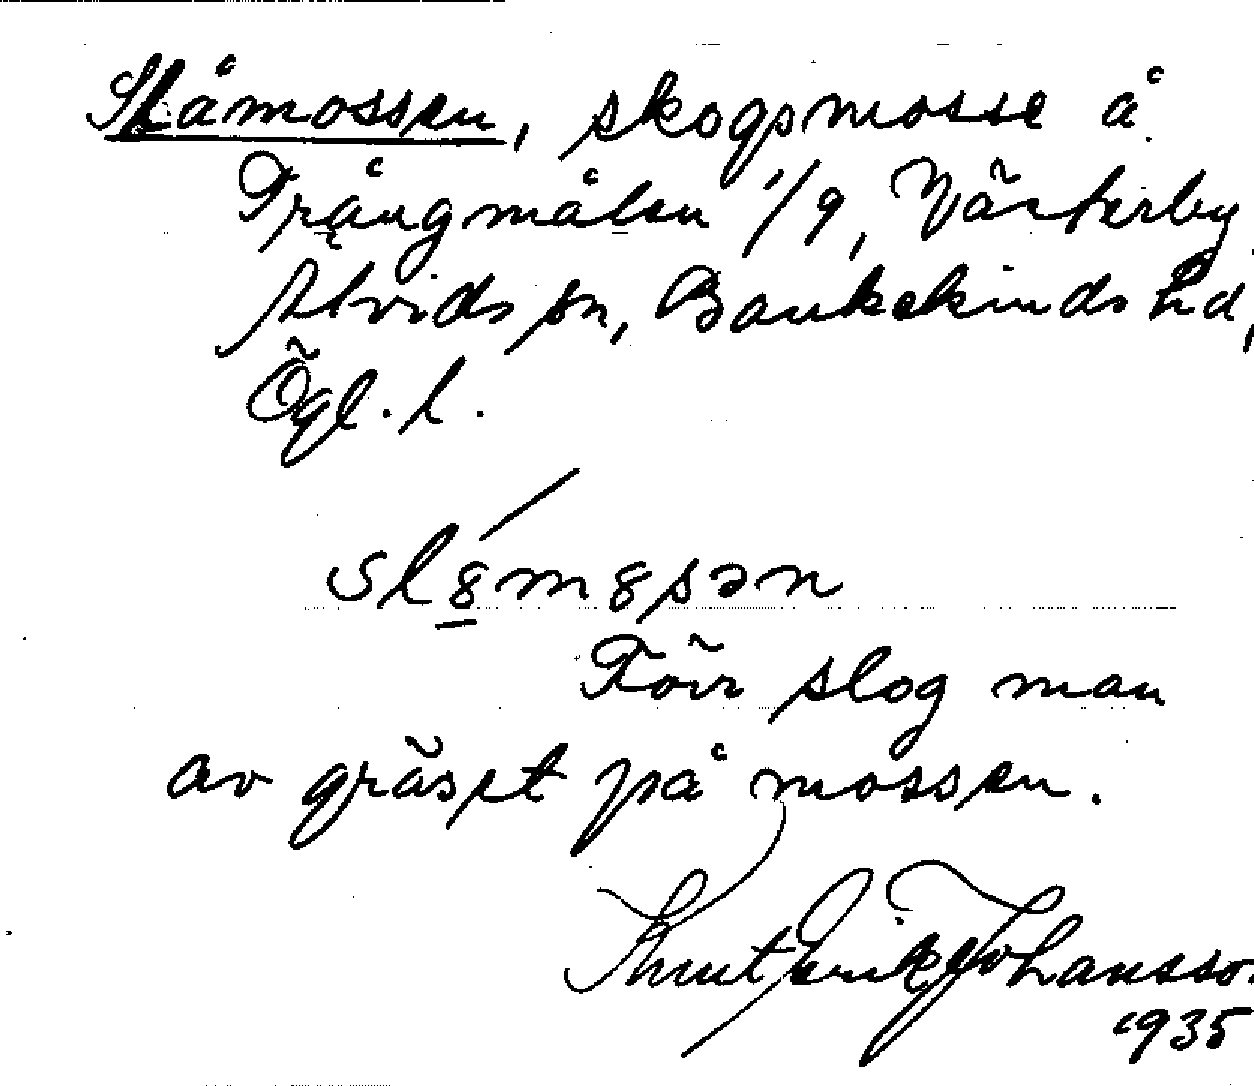 Slåmossen, skogsmosse å
Trångmålen 1/9, Västerby
Åtvids sn, Bankekinds hd,
Ögl. l.
slåmåsən
Förr slog man
av gräset på mossen.
Knut Erik Johansson
1935